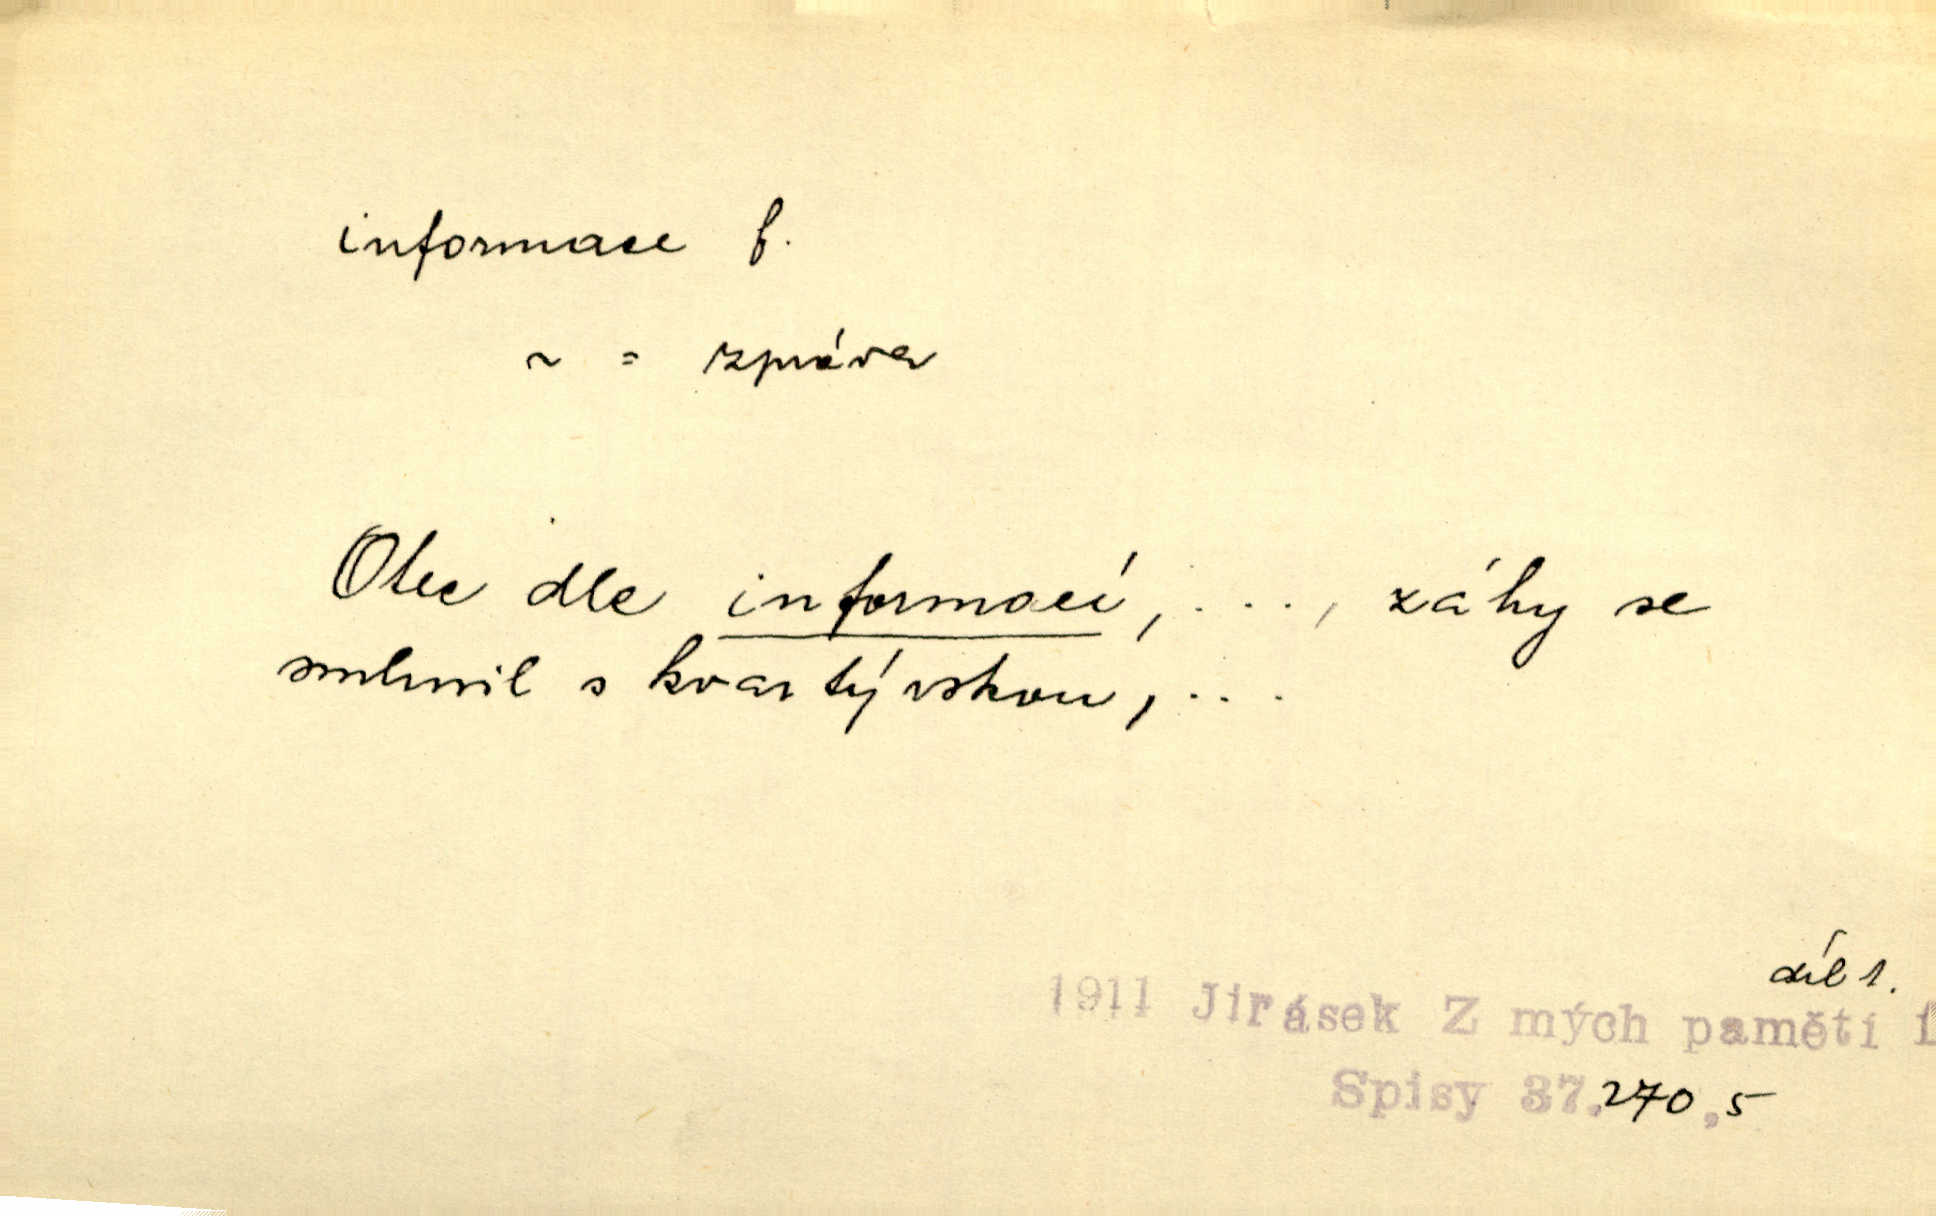 informace f.
~ = zpráva
Otec dle informací, ..., záhy se
smluvil s kvartýrskou, ...
díl 1.
1911 Jirásek Z mých pamětí I
Spisy 37.270,5